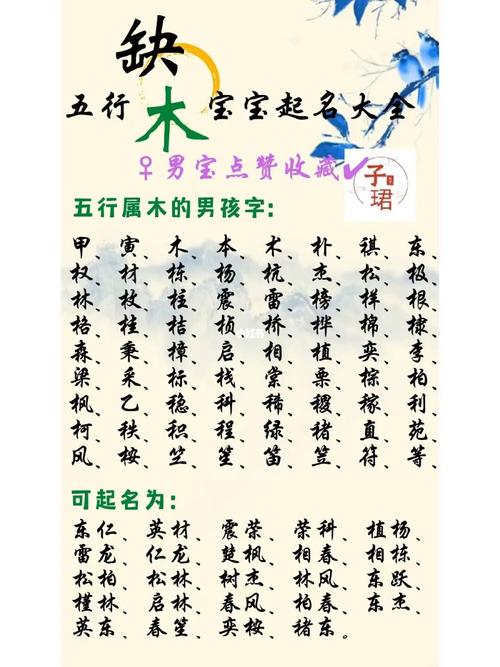 缺
五行木宝宝起名大全
♀男宝点赞收藏✔
子
珺
五行属木的男孩字:
甲、寅、木、本、术、朴、祺、东、
权、材、栋、杨、杭、杰、松、极、
林、枚、柱、震、雷、榜、样、根、
格、桂、桔、桢、桥、桦、棉、棣、
森、秉、樟、启、相、植、奕、李、
梁、采、标、栈、棠、栗、棕、柏、
枫、乙、稳、科、稀、稷、稼、利、
柯、秩、积、程、绿、楮、直、苑、
风、桉、竺、笙、笛、笠、符、等、
可起名为:
东仁、英材、震荣、荣科、植杨、
雷龙、仁龙、楚枫、相春、相栋、
松柏、松林、树杰、林风、东跃、
槿林、启林、春风、柏春、东杰、
英东、春笙、奕桉、楮东。